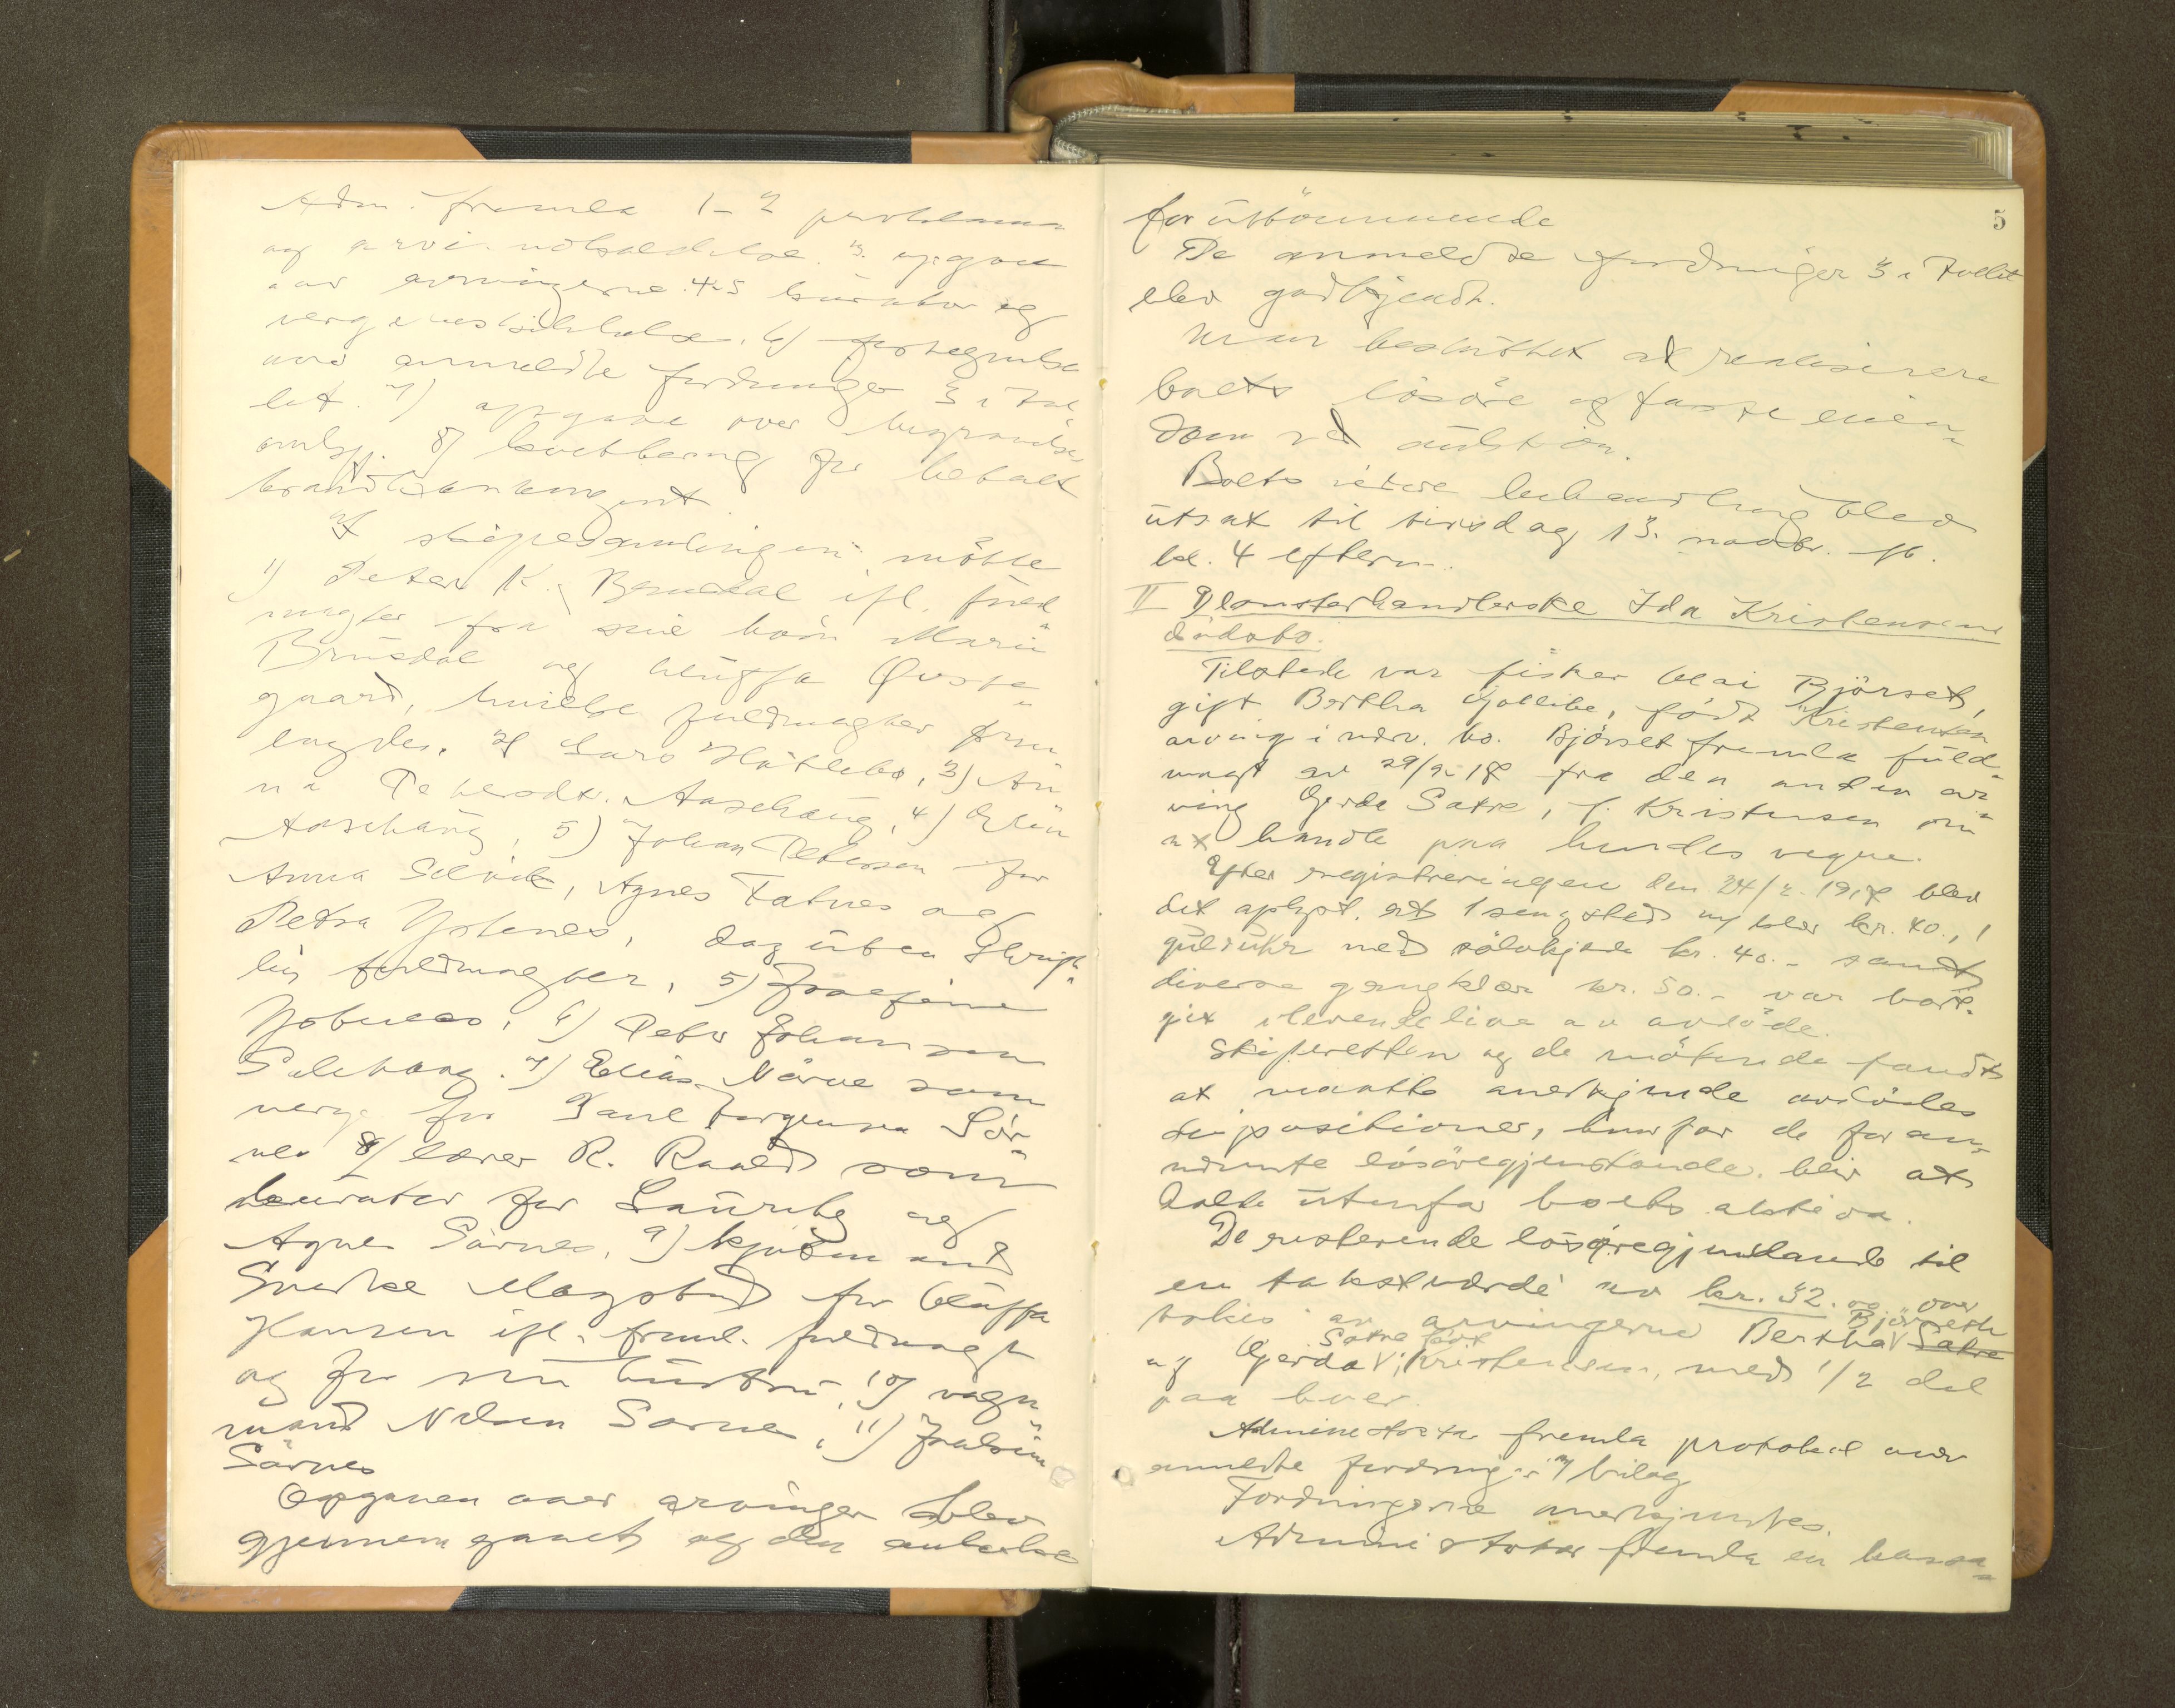 Adm. fremla 1-2 proklama
og arvi 3. opgave
over arvingerne. 4-5 kurator og
verge 6) fortegnelse
over anmeldte fordringer 3 i tal
let. 7) opgave over begravelses
omk. 8) kvittering for betalt
brandkontingent
I skiftesamlingen mötte
1) Peter K. Brusdal ifl. fuld
magter fra sine barn Marie
Brusdal og Olufffa Qviste
gaard, hvilke fuldmagter frem
lagdes. 2) Lars Hatlebø, 3) An
na Petersdtr. Aasehaug, 4) Elen
Aasehaug, 5) Johan Petersen for
Anna Selvik, Agnes Fatnes og
Petra dog uten skrift
lig fuldmagter, 5) Josefine
6) Peter Johansen
Sulebang. 7) Elias Nörve som
verge for Karl Jørgensen Sör
nes 8) lærer R. Raald som
kurator for Lauritz og
Agnes Särnes, 9) kjöbmand
Sverke Magstad for Oluffa
Hansen ifl. freml. fuldmagt
og for sin hustru, 10) vogn
mand Nilsen Sarnes, 11)
Särnes
Opgaven over arvinger blev
gjennemgaaet og den
5
for utkommende
De anmeldte fordringer 3 i tallet
blev godkjendt.
Man besluttet at realisere
boets lösöre og faste eien
dom ved auktion.
Boets videre behandling blev
utsat til tirsdag 13. novbr.
kl. 4 efterm.
II Blomsterhandlerske Ida Kristensens
dödsbo.
Tilstede var fisker Olai Björset,
gift Bertha födt Kristensen
arving i nærv. bo. Björset fremla fuld-
magt av 29/9 18 fra den anden ar
ving Gerda Satre, f. Kristensen om
at handle paa hendes vegne.
Efter registreringen den 24/9 1918 blev
det oplyst, at 1 sengsted kr. 40., 1
guldukr med sölvkjede kr. 40.- samt
diverse gangklær kr. 50.- var bort-
git i levende live av avdöde.
Skifteretten og de mötende fandt
at maatte anerkjende avdödes
dispositioner, hvorfor de foran
nævnte lösöregjenstande blir at
holde utenfor boets aktiva.
De resterende lösöregjenstande til
en takstværdi av kr. 32.00 over
tokes av arvingerne Bertha Björseth Satre
og Gerda Satre födt Kristensen, med 1/2 del
paa hver.
Administrator fremla protokol over
anmeldte fordringer i 7 bilag
Fordringerne anerkjendtes.
Administrator fremla en kassa